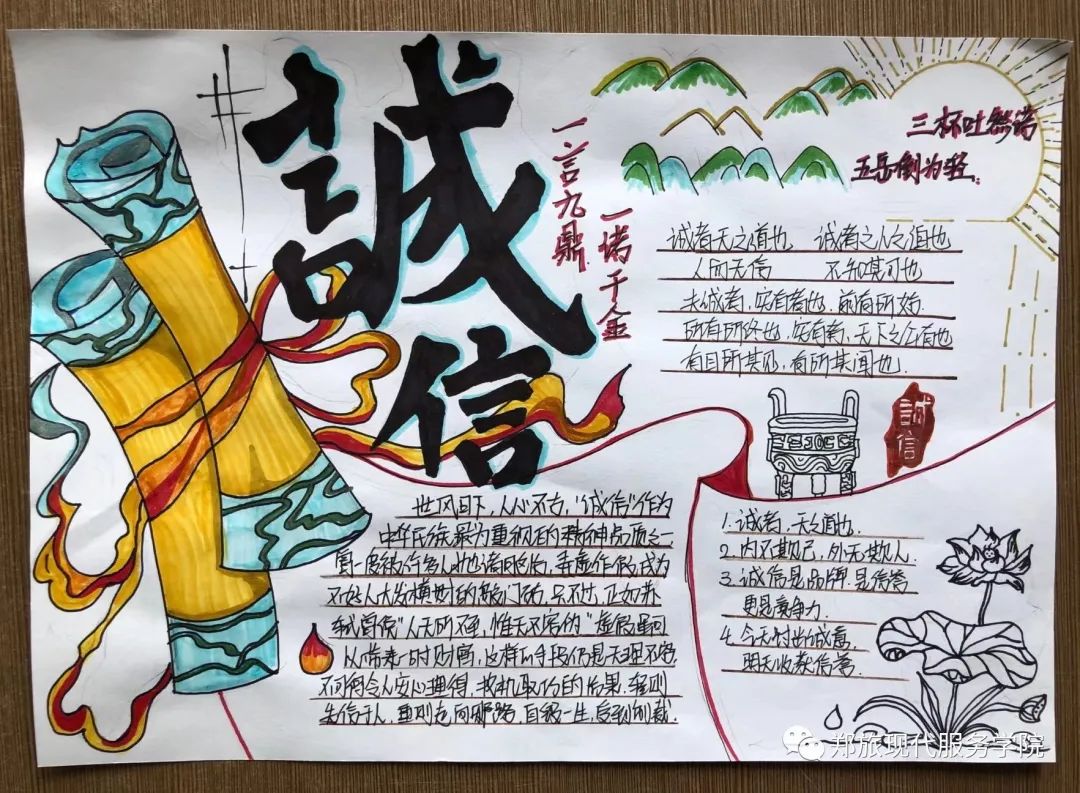 誠
信
一言九鼎
一诺千金
三杯吐然诺
五岳倒为轻
诚者天之道也 诚者之人之道也
人而无信 不知其可也
夫诚者,实有者也,前有所始
所有所终也,实有者,天下之公有也
有目所共见,有所共闻也!
誠信
世风日下,人心不古,"诚信"作为
中华民族最为重视的精神品质之一
曾一度被许多人
弄虚作假,成为
不少人大发横财的
只不过,正如苏
轼曾说"人无所不至,惟天不容伪"虚假虽可
以带来一时财富,这样的手段仍是天理不容
不可能令人安心理得,投机取巧的后果,轻则
失信于人,重则走向邪路,自毁一生,受到制裁.
1.诚者,天之道也.
2.内不欺己,外不欺人.
3.诚信是品牌,是信誉
更是竞争力.
4.今天付出诚意
明天收获信誉.
郑旅现代服务学院